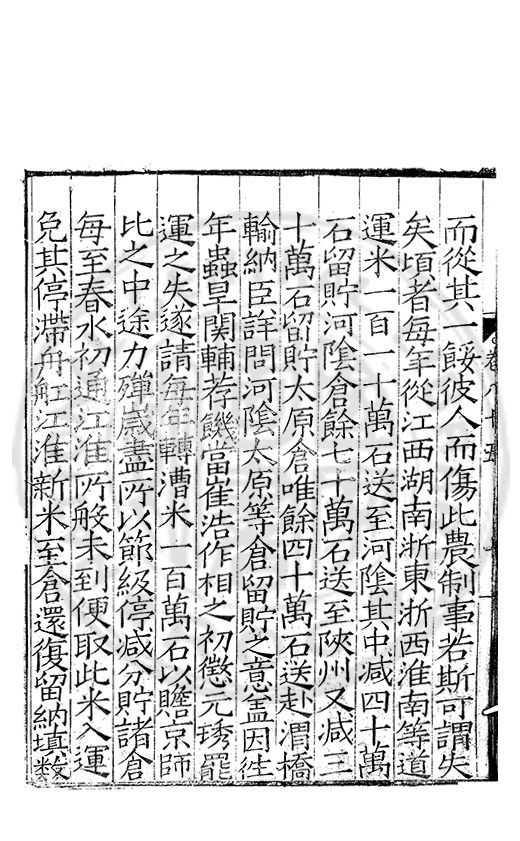 而從其一餒彼人而傷此農制事若斯可謂失
矣頃者每年從江西湖南浙東浙西淮南等道
運米一百一十萬石送至河陰其中减四十萬
石留貯河陰倉餘七十萬石送至陝州又减三
十萬石留貯太原倉唯餘四十萬石送赴渭橋
輸納臣詳問河陰太原等倉留貯之意盖因往
年蟲旱関輔荐饑當崔造作相之初懲元琇罷
運之失遂請每年轉漕米一百萬石以贍京師
比之中途力殫歲盡所以節級停减分貯諸倉
每至春水初通江淮所般未到便取此米入運
免其停滯舟舡江淮新米至倉還復留納填数
卷八十五